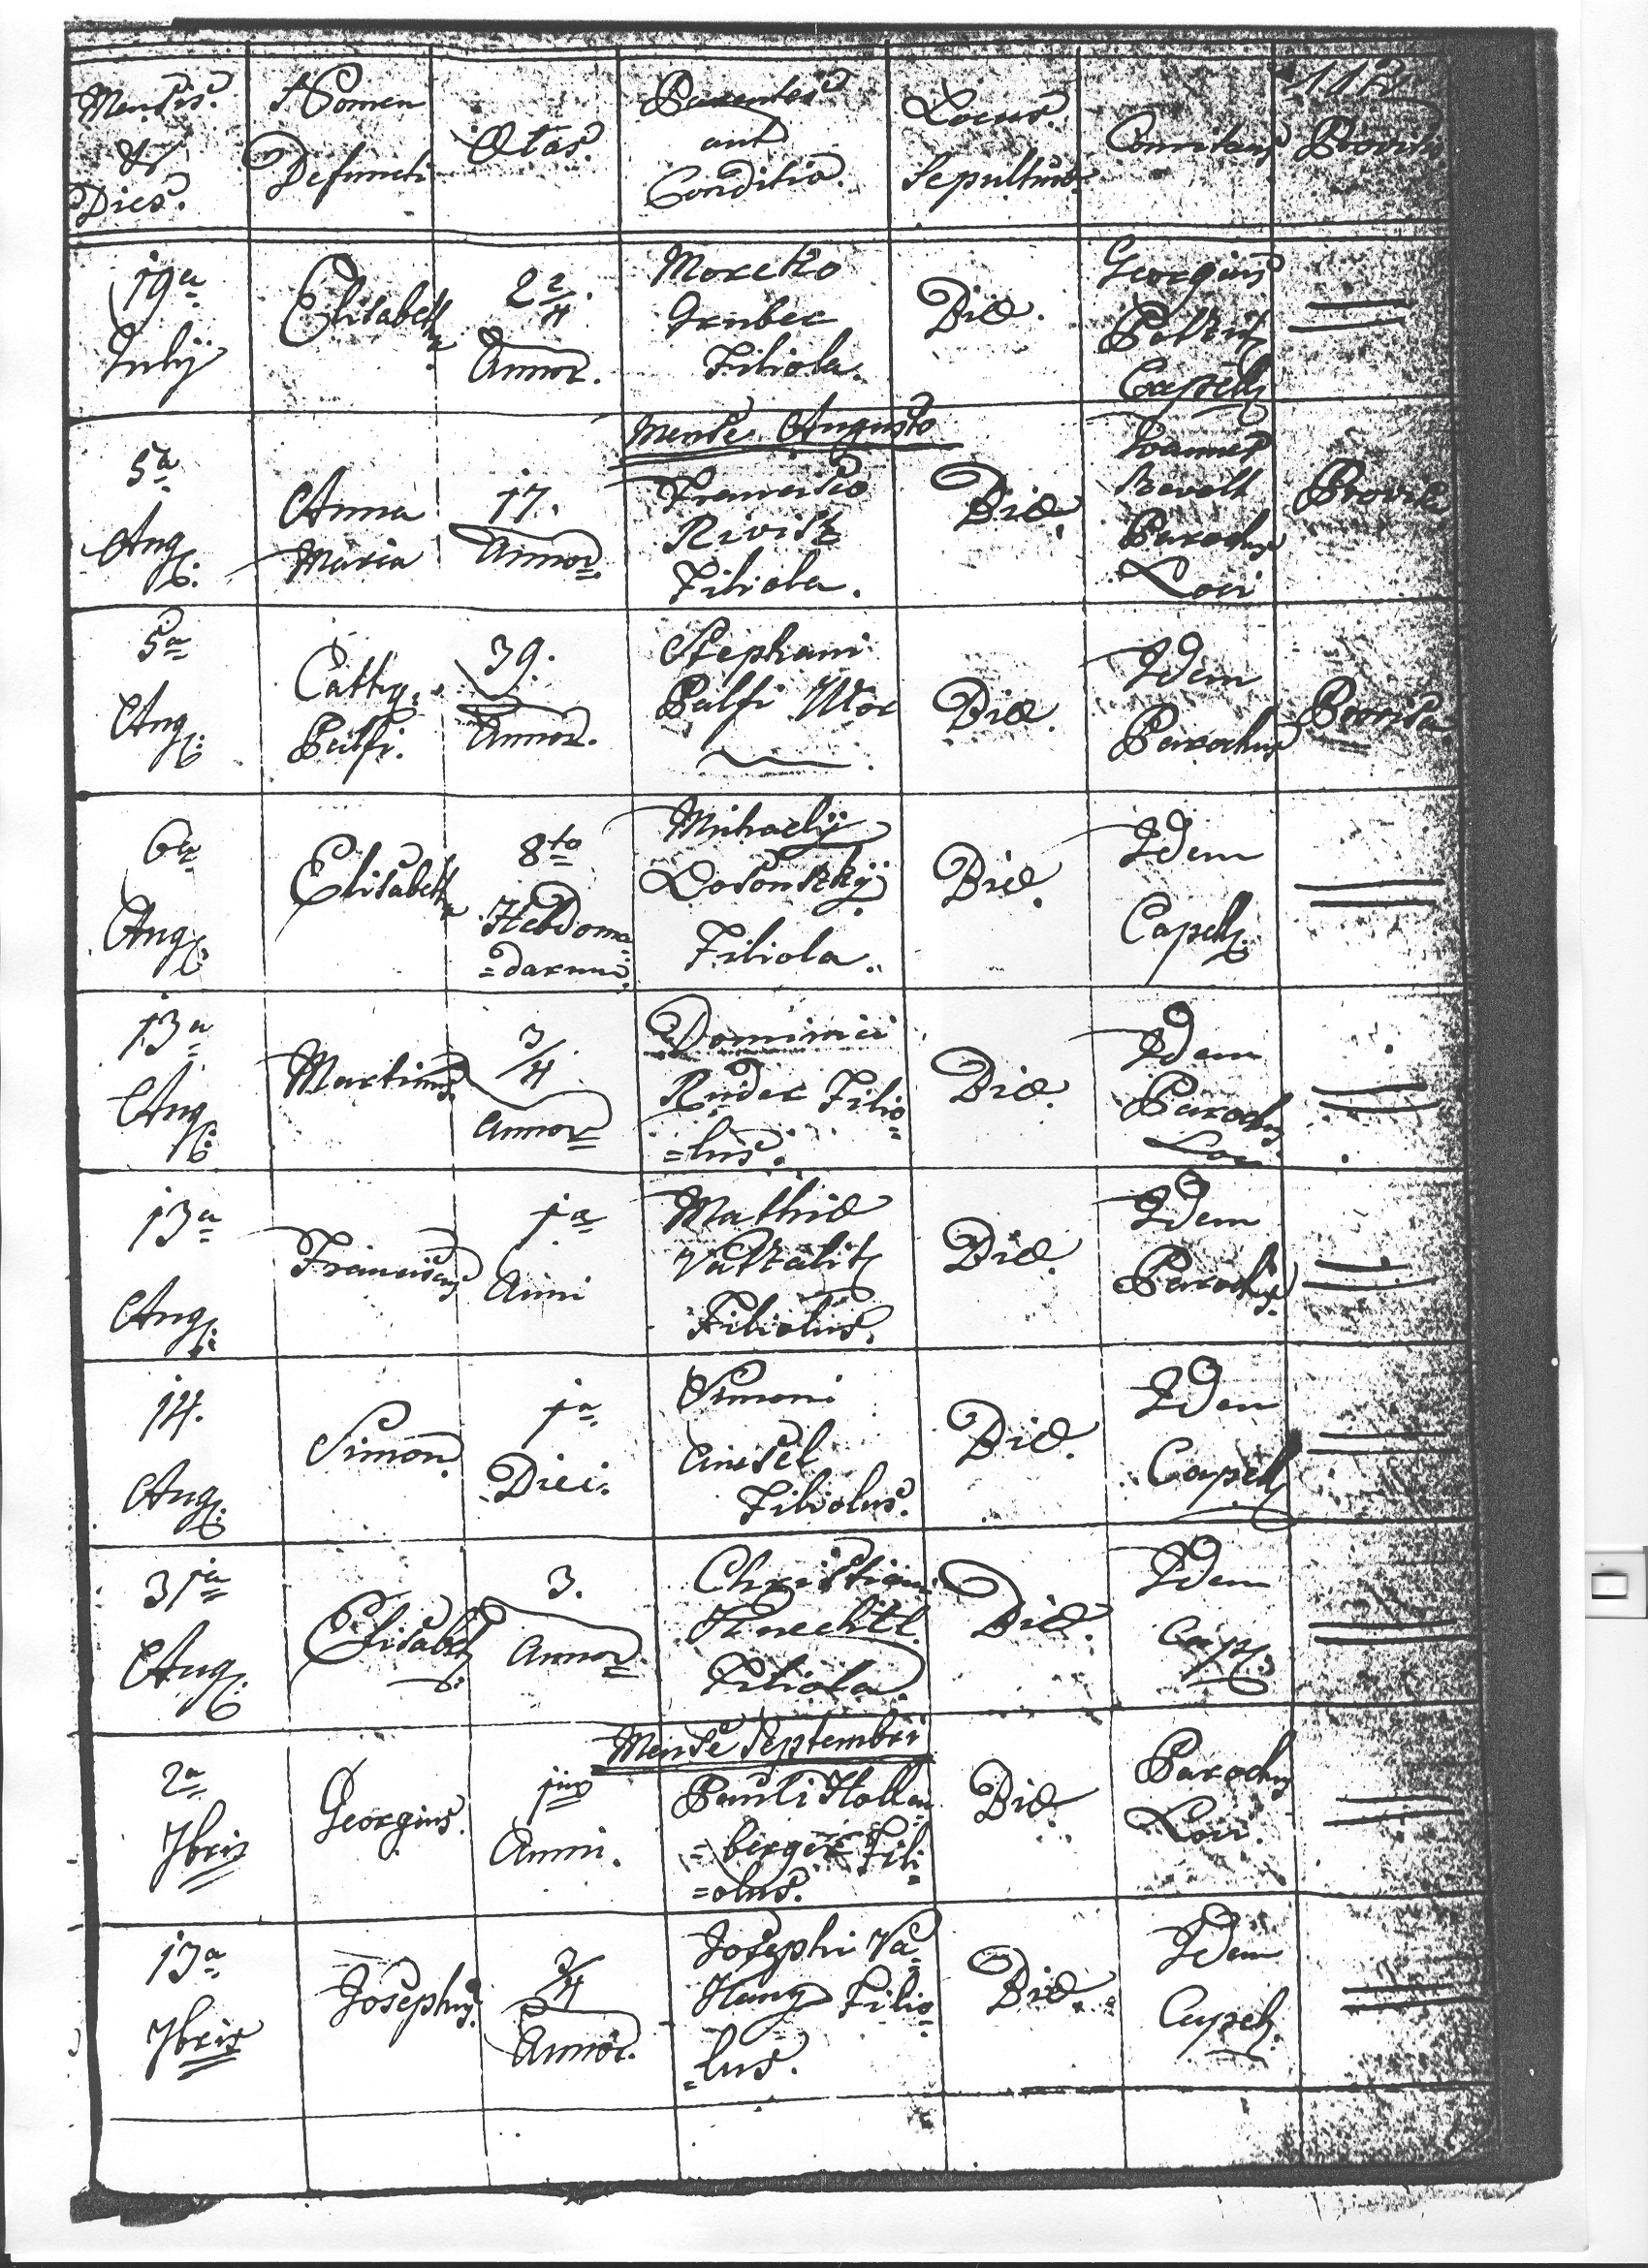 Mensis & Dies. Nomen Defuncti Ætas. Parentes aut Conditio. Locus Sepulturæ Comitans Provis
19a July Elisabeth 2 2/4 Annor. Moreko Gruber Filiola. Biæ. Georgius Capell
Mense Augusto
5a Aug: Anna Maria 17. Annor. Francisco Rivisz Filiola. Biæ. Joannes Parochus Loci Provisa
5a Aug: Cath: Palfi. 39. Annor. Stephani Palfi Uxor Biæ. Idem Parochus Provisa
6a Aug: Elisabeth 8to Hebdoma= =darum. Mihaelÿ Losonszkÿ Filiola. Biæ. Idem Capell:
13a Aug: Martinus 3/4 Annor Dominici Rieder Filio= =lus. Biæ. Idem Parochus Loci
13a Aug: Franciscus 1a Anni Mathiæ Filiolus. Biæ. Idem Parochus
14. Aug: Simon. 1a Diei. Simoni Filiolus. Biæ. Idem Capell
31a Aug: Elisabeth 3. Annor Christiani Knechtl Filiola. Biæ. Idem Cap:
Mense Septembri
2a 7bris Georgius. Anni. Pauli Hollen= =berger Fili= =olus. Biæ. Parochus Loci.
13a 7bris Josephus 3/4 Annor. Josephi Va= Hang Filio= =lus. Biæ. Idem Capell.